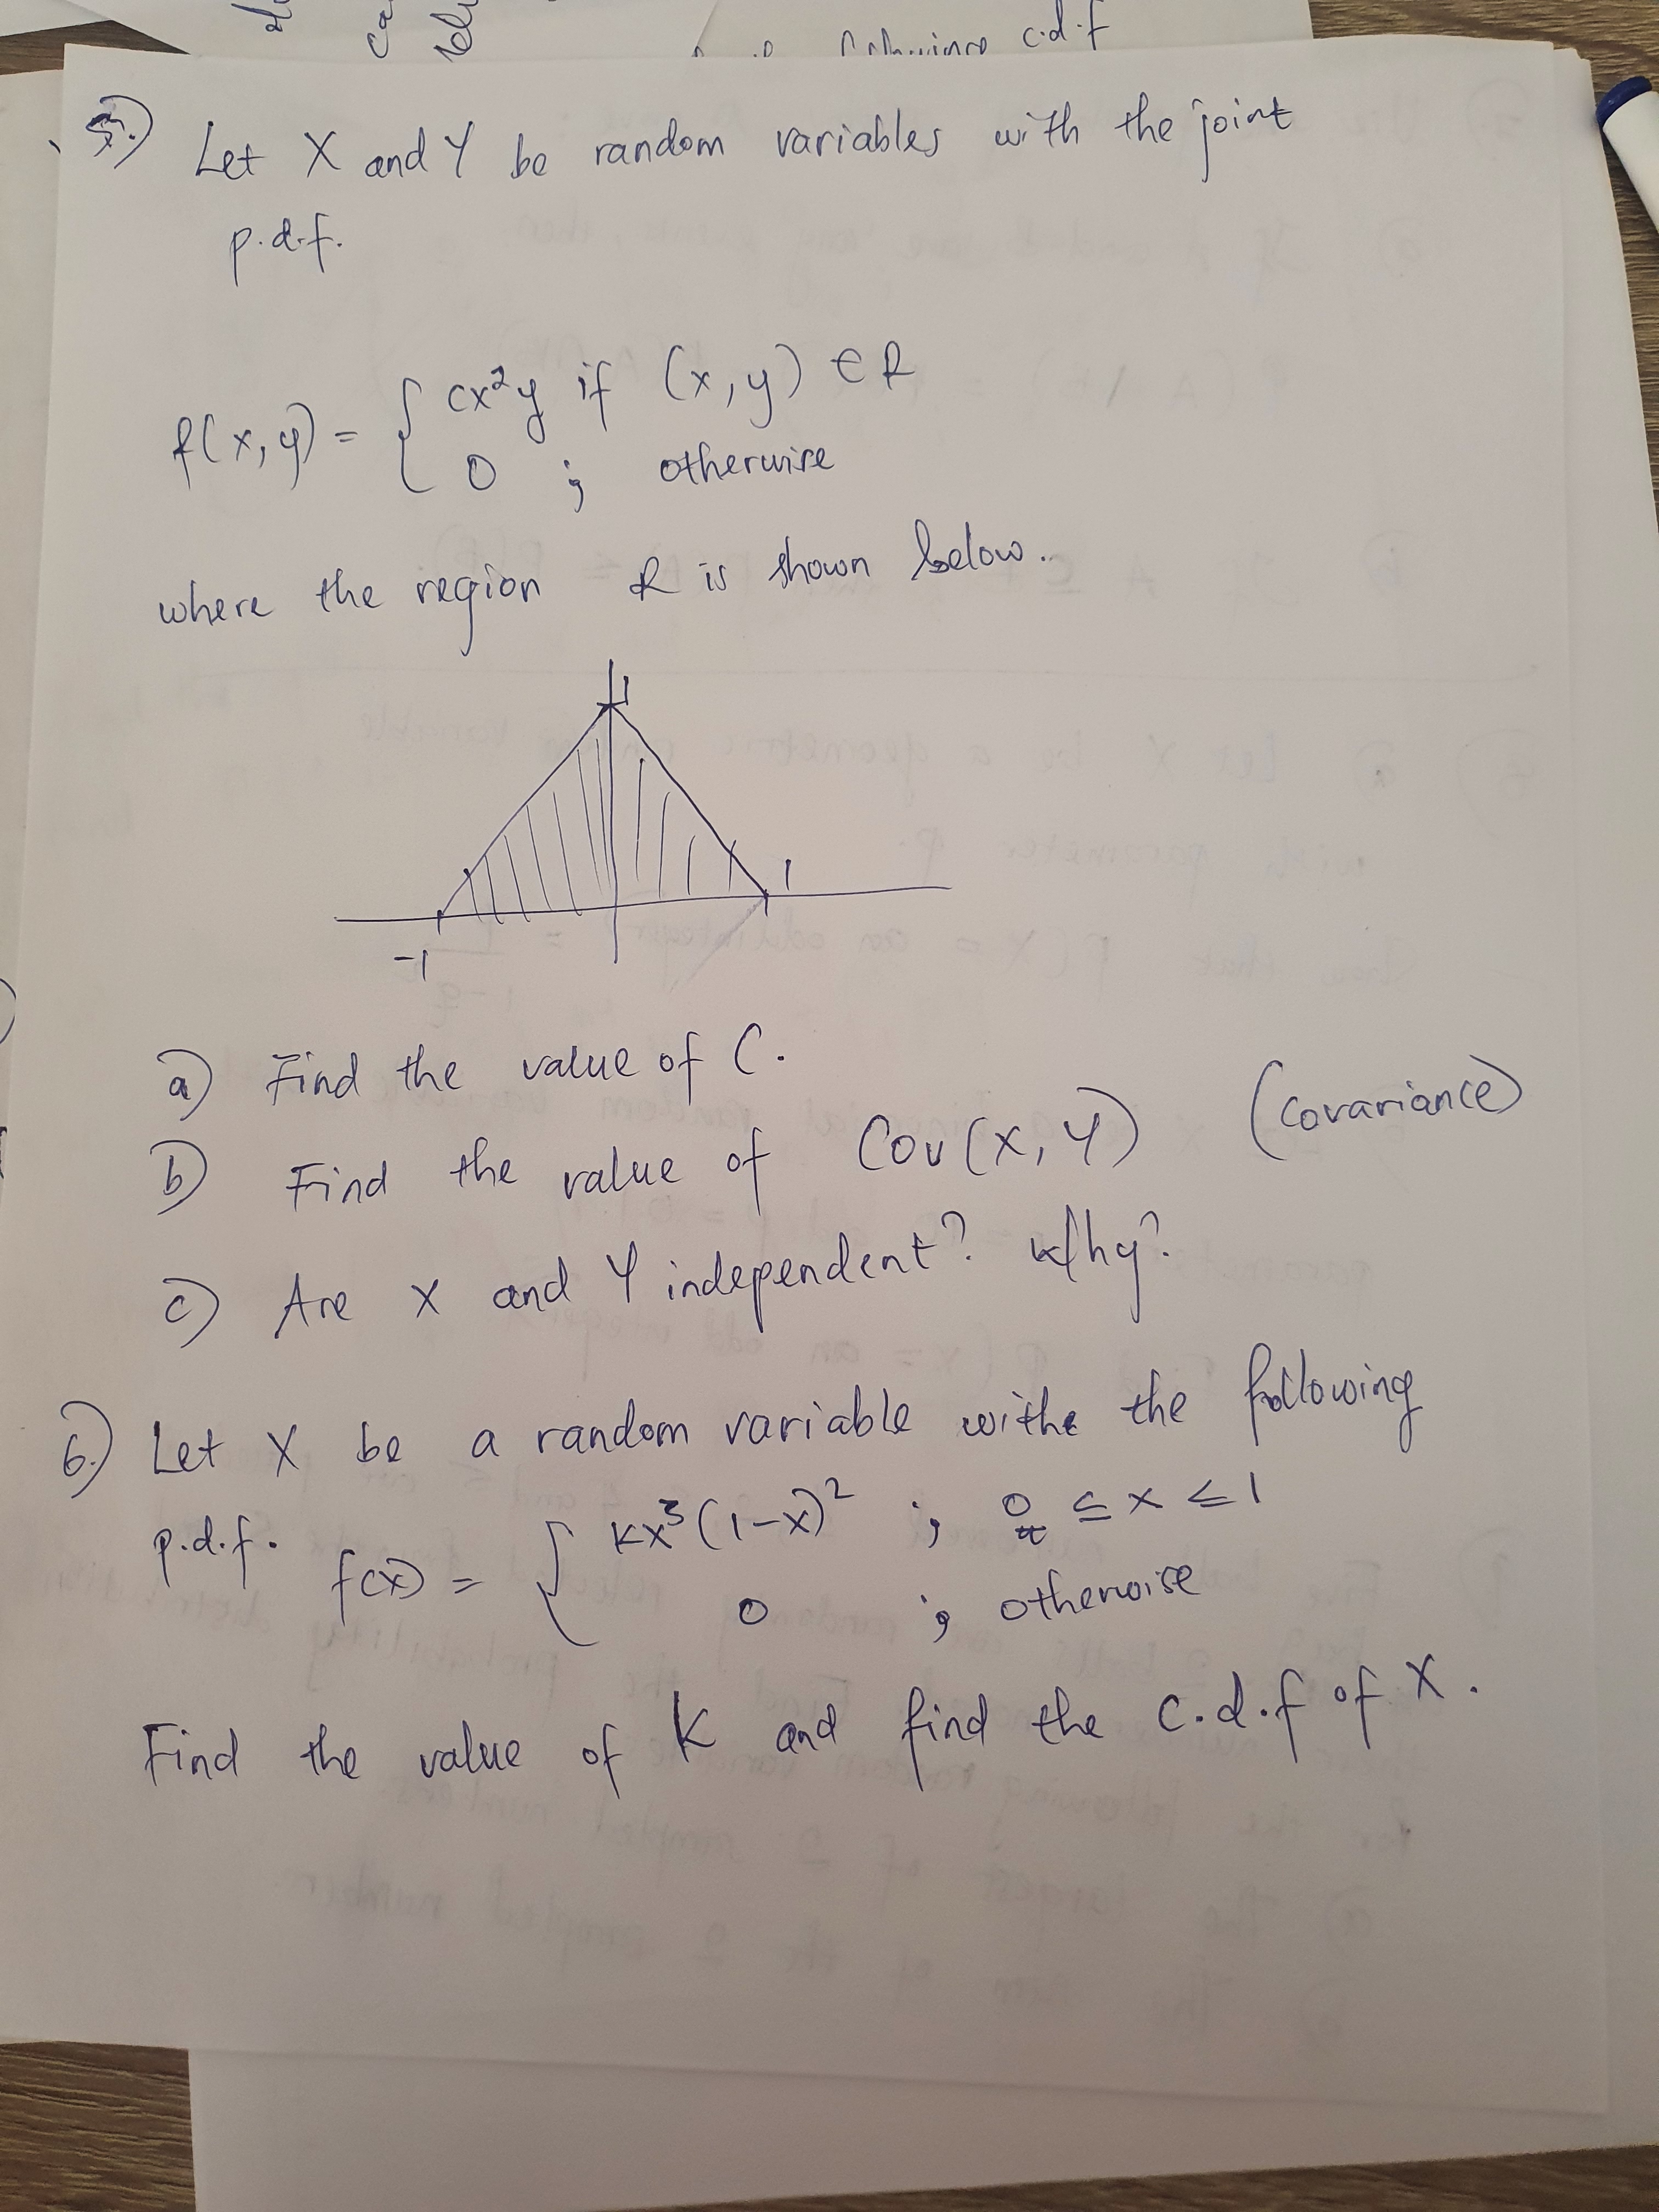 c.d.f
5.) Let X and Y be random variables with the joint
p.d.f.
f(x,y) = { cx²y if (x,y) ∈ R
0 ; otherwise
where the region R is shown below.
1
1
-1
a) Find the value of C.
b) Find the value of Cov(X,Y) (Covariance)
c) Are X and Y independent? Why?
6.) Let X be a random variable withe the following
p.d.f. f(x) = { kx³(1-x)² ; 0 ≤ x ≤ 1
0 ; otherwise
Find the value of K and find the c.d.f of X.